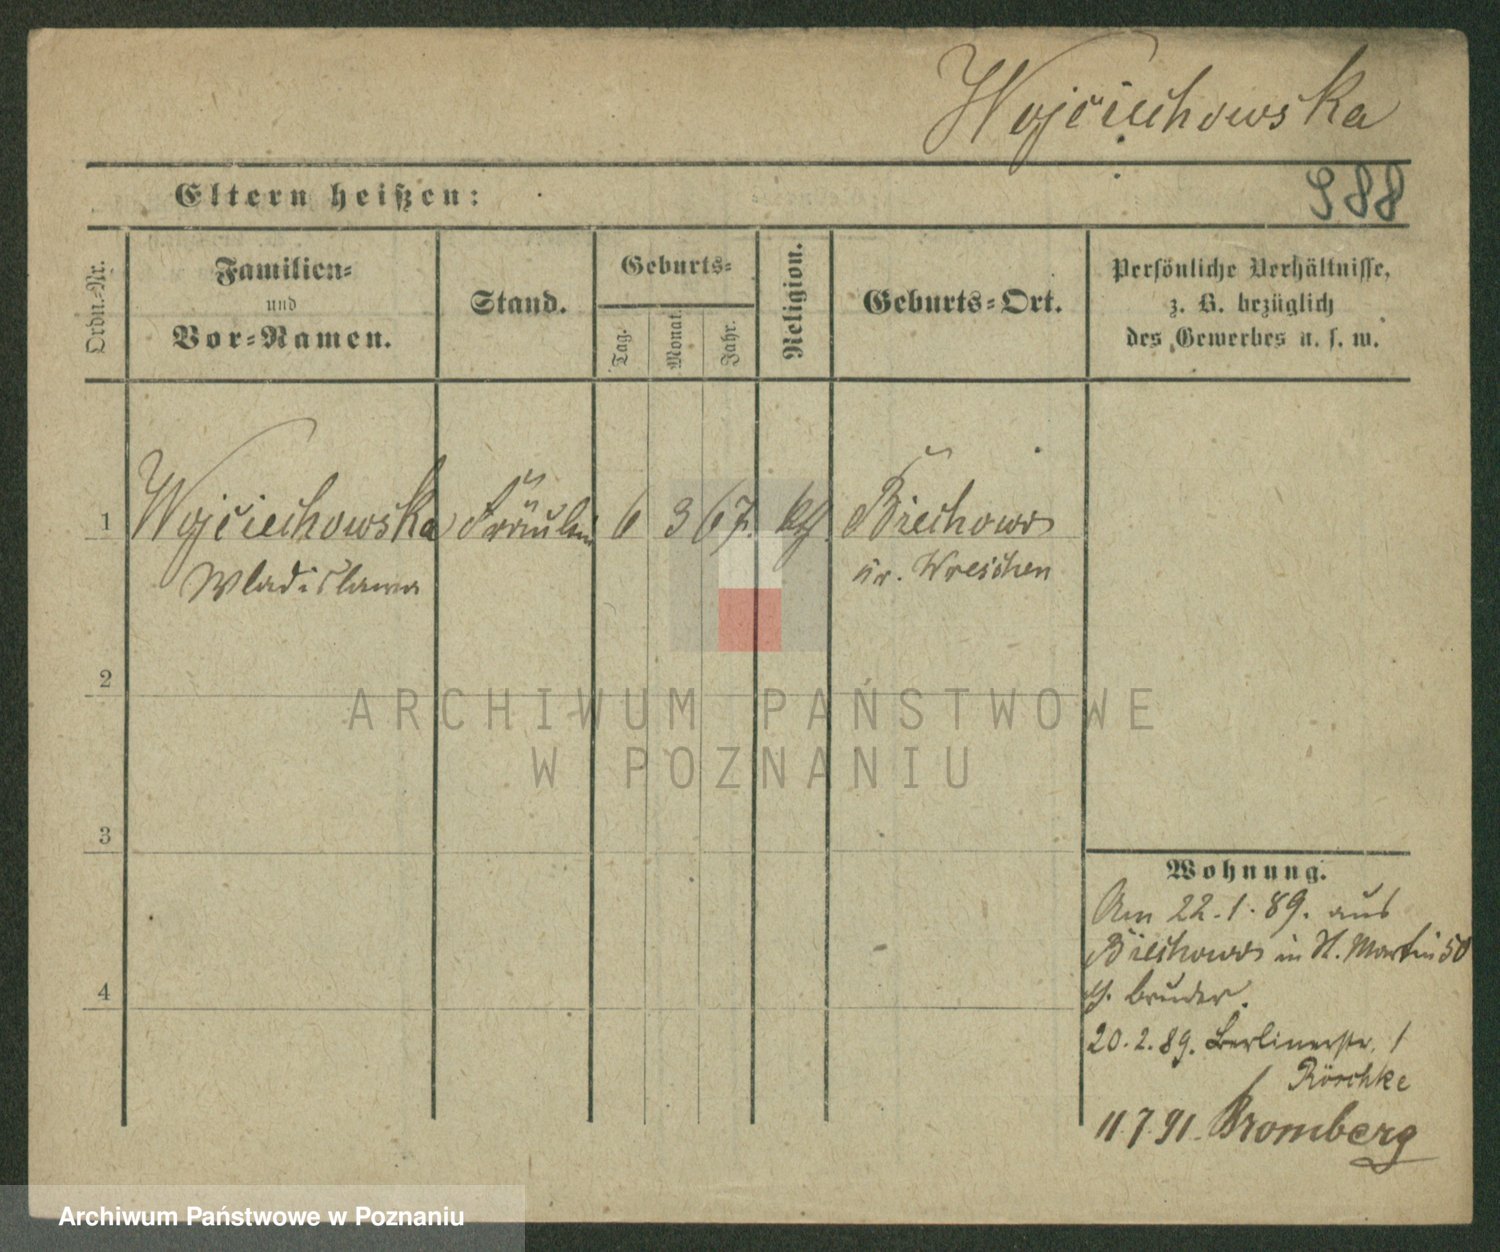 Wojciechowska
Eltern heißen:
988
Ordn.-Nr.
Familien-
und
Vor-Namen.
Stand.
Geburts-
Tag.
Monat.
Jahr.
Religion.
Geburts-Ort.
Persönliche Verhältnisse,
z. B. bezüglich
des Gewerbes u. s. w.
1 Wojciechowska Fräulein 6 3 67. kth Biechowo
Wladislawa Kr. Wreschen
2
ARCHIWUM PAŃSTWOWE
W POZNANIU
3
Wohnung.
Am 22.1.89. aus
Biechowo in St. Martin 50
b. Bruder.
4
20.2.89. Berlinerstr. 1
Röschke
11.7.91. Bromberg
Archiwum Państwowe w Poznaniu